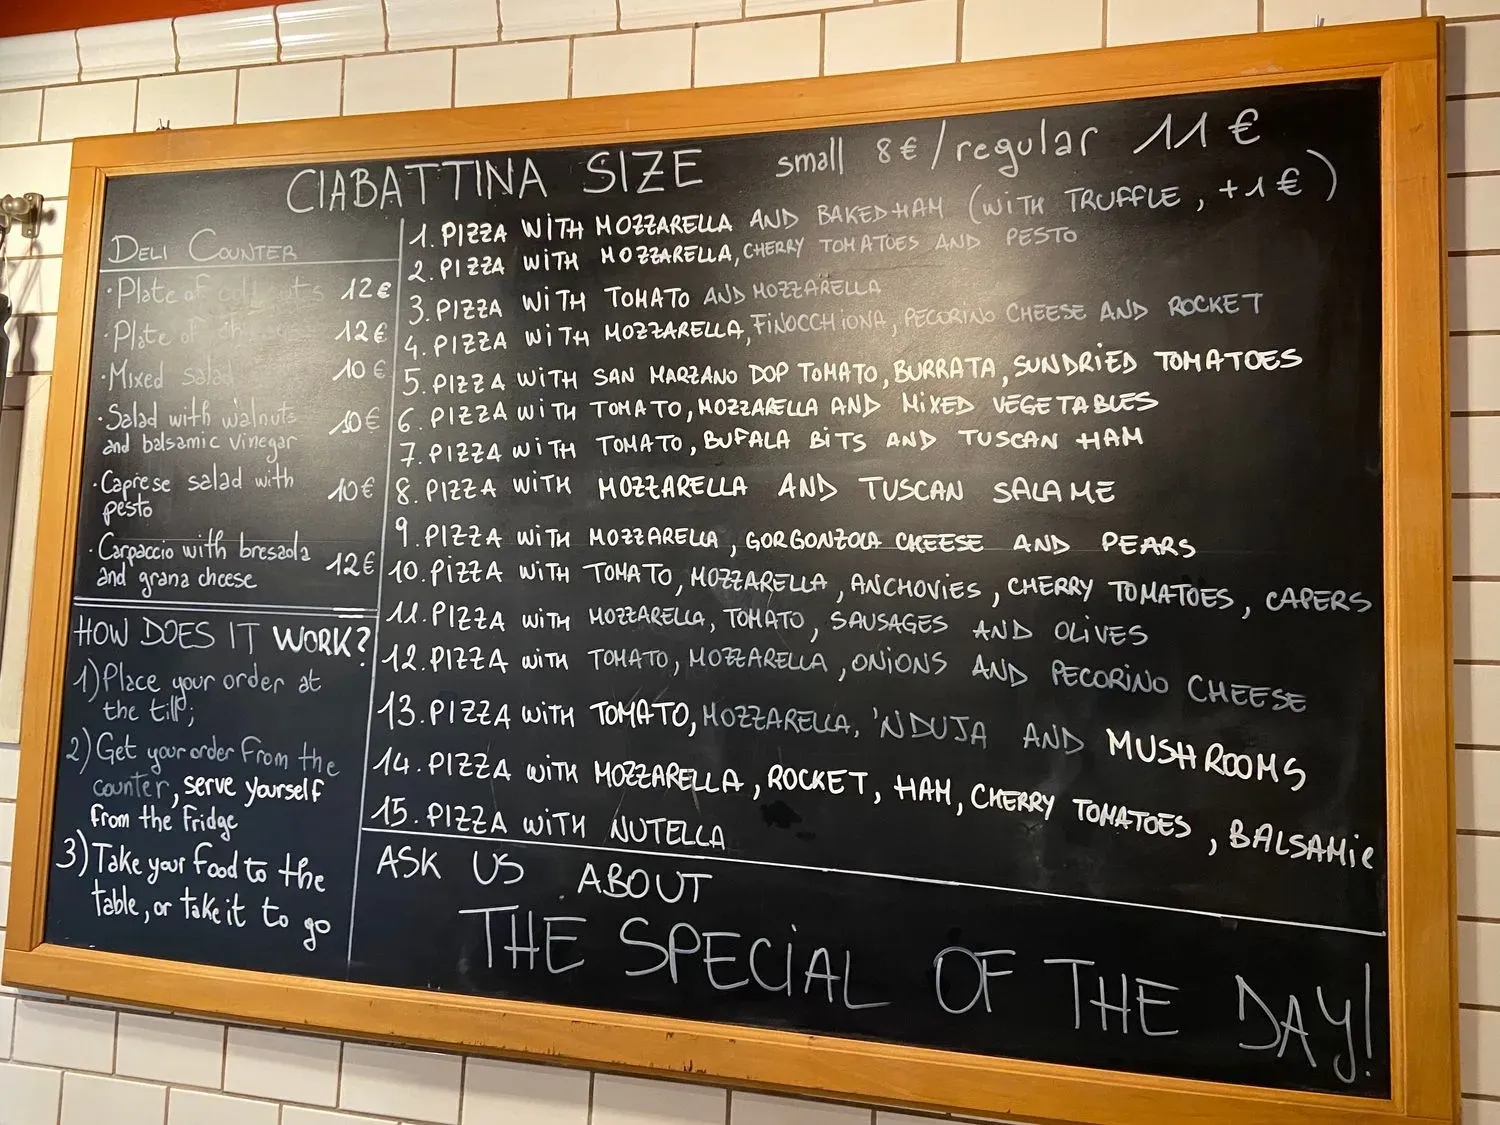 CIABATTINA SIZE small 8€/regular 11€
DELI COUNTER
·Plate of cold cuts 12€
·Plate of 12€
·Mixed salad 10€
·Salad with walnuts 10€
and balsamic vinegar
·Caprese salad with 10€
pesto
·Carpaccio with bresaola 12€
and grana cheese
HOW DOES IT WORK?
1) Place your order at
the till;
2) Get your order from the
counter, serve yourself
from the fridge
3) Take your food to the
table, or take it to go
1. PIZZA WITH MOZZARELLA AND BAKED HAM (WITH TRUFFLE, +1€)
2. PIZZA WITH MOZZARELLA, CHERRY TOMATOES AND PESTO
3. PIZZA WITH TOMATO AND MOZZARELLA
4. PIZZA WITH MOZZARELLA, FINOCCHIONA, PECORINO CHEESE AND ROCKET
5. PIZZA WITH SAN MARZANO DOP TOMATO, BURRATA, SUNDRIED TOMATOES
6. PIZZA WITH TOMATO, MOZZARELLA AND MIXED VEGETABLES
7. PIZZA WITH TOMATO, BUFALA BITS AND TUSCAN HAM
8. PIZZA WITH MOZZARELLA AND TUSCAN SALAME
9. PIZZA WITH MOZZARELLA, GORGONZOLA CHEESE AND PEARS
10. PIZZA WITH TOMATO, MOZZARELLA, ANCHOVIES, CHERRY TOMATOES, CAPERS
11. PIZZA WITH MOZZARELLA, TOMATO, SAUSAGES AND OLIVES
12. PIZZA WITH TOMATO, MOZZARELLA, ONIONS AND PECORINO CHEESE
13. PIZZA WITH TOMATO, MOZZARELLA, 'NDUJA AND MUSHROOMS
14. PIZZA WITH MOZZARELLA, ROCKET, HAM, CHERRY TOMATOES, BALSAMIC
15. PIZZA WITH NUTELLA
ASK US ABOUT
THE SPECIAL OF THE DAY!